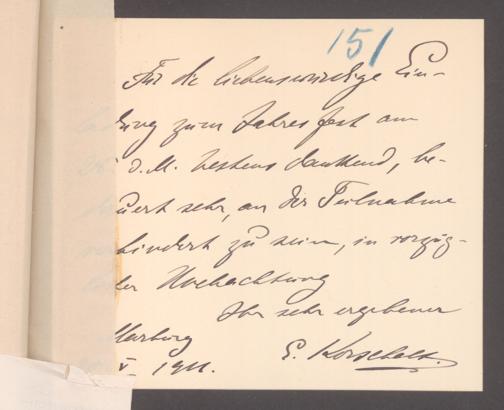 151
Für die liebenswürdige Ein-
ladung zum Jahresfest am
26. d. M. bestens dankend, be-
dauert sehr, an der Teilnahme
verhindert zu sein, in vorzüg-
licher Hochachtung
Ihr sehr ergebener
Marburg
V 1911. E. Korschelt.